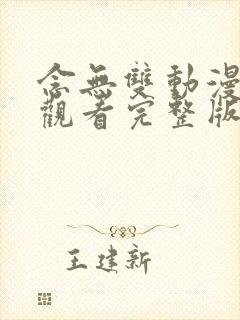 念無雙動漫
觀看完整版
王建新